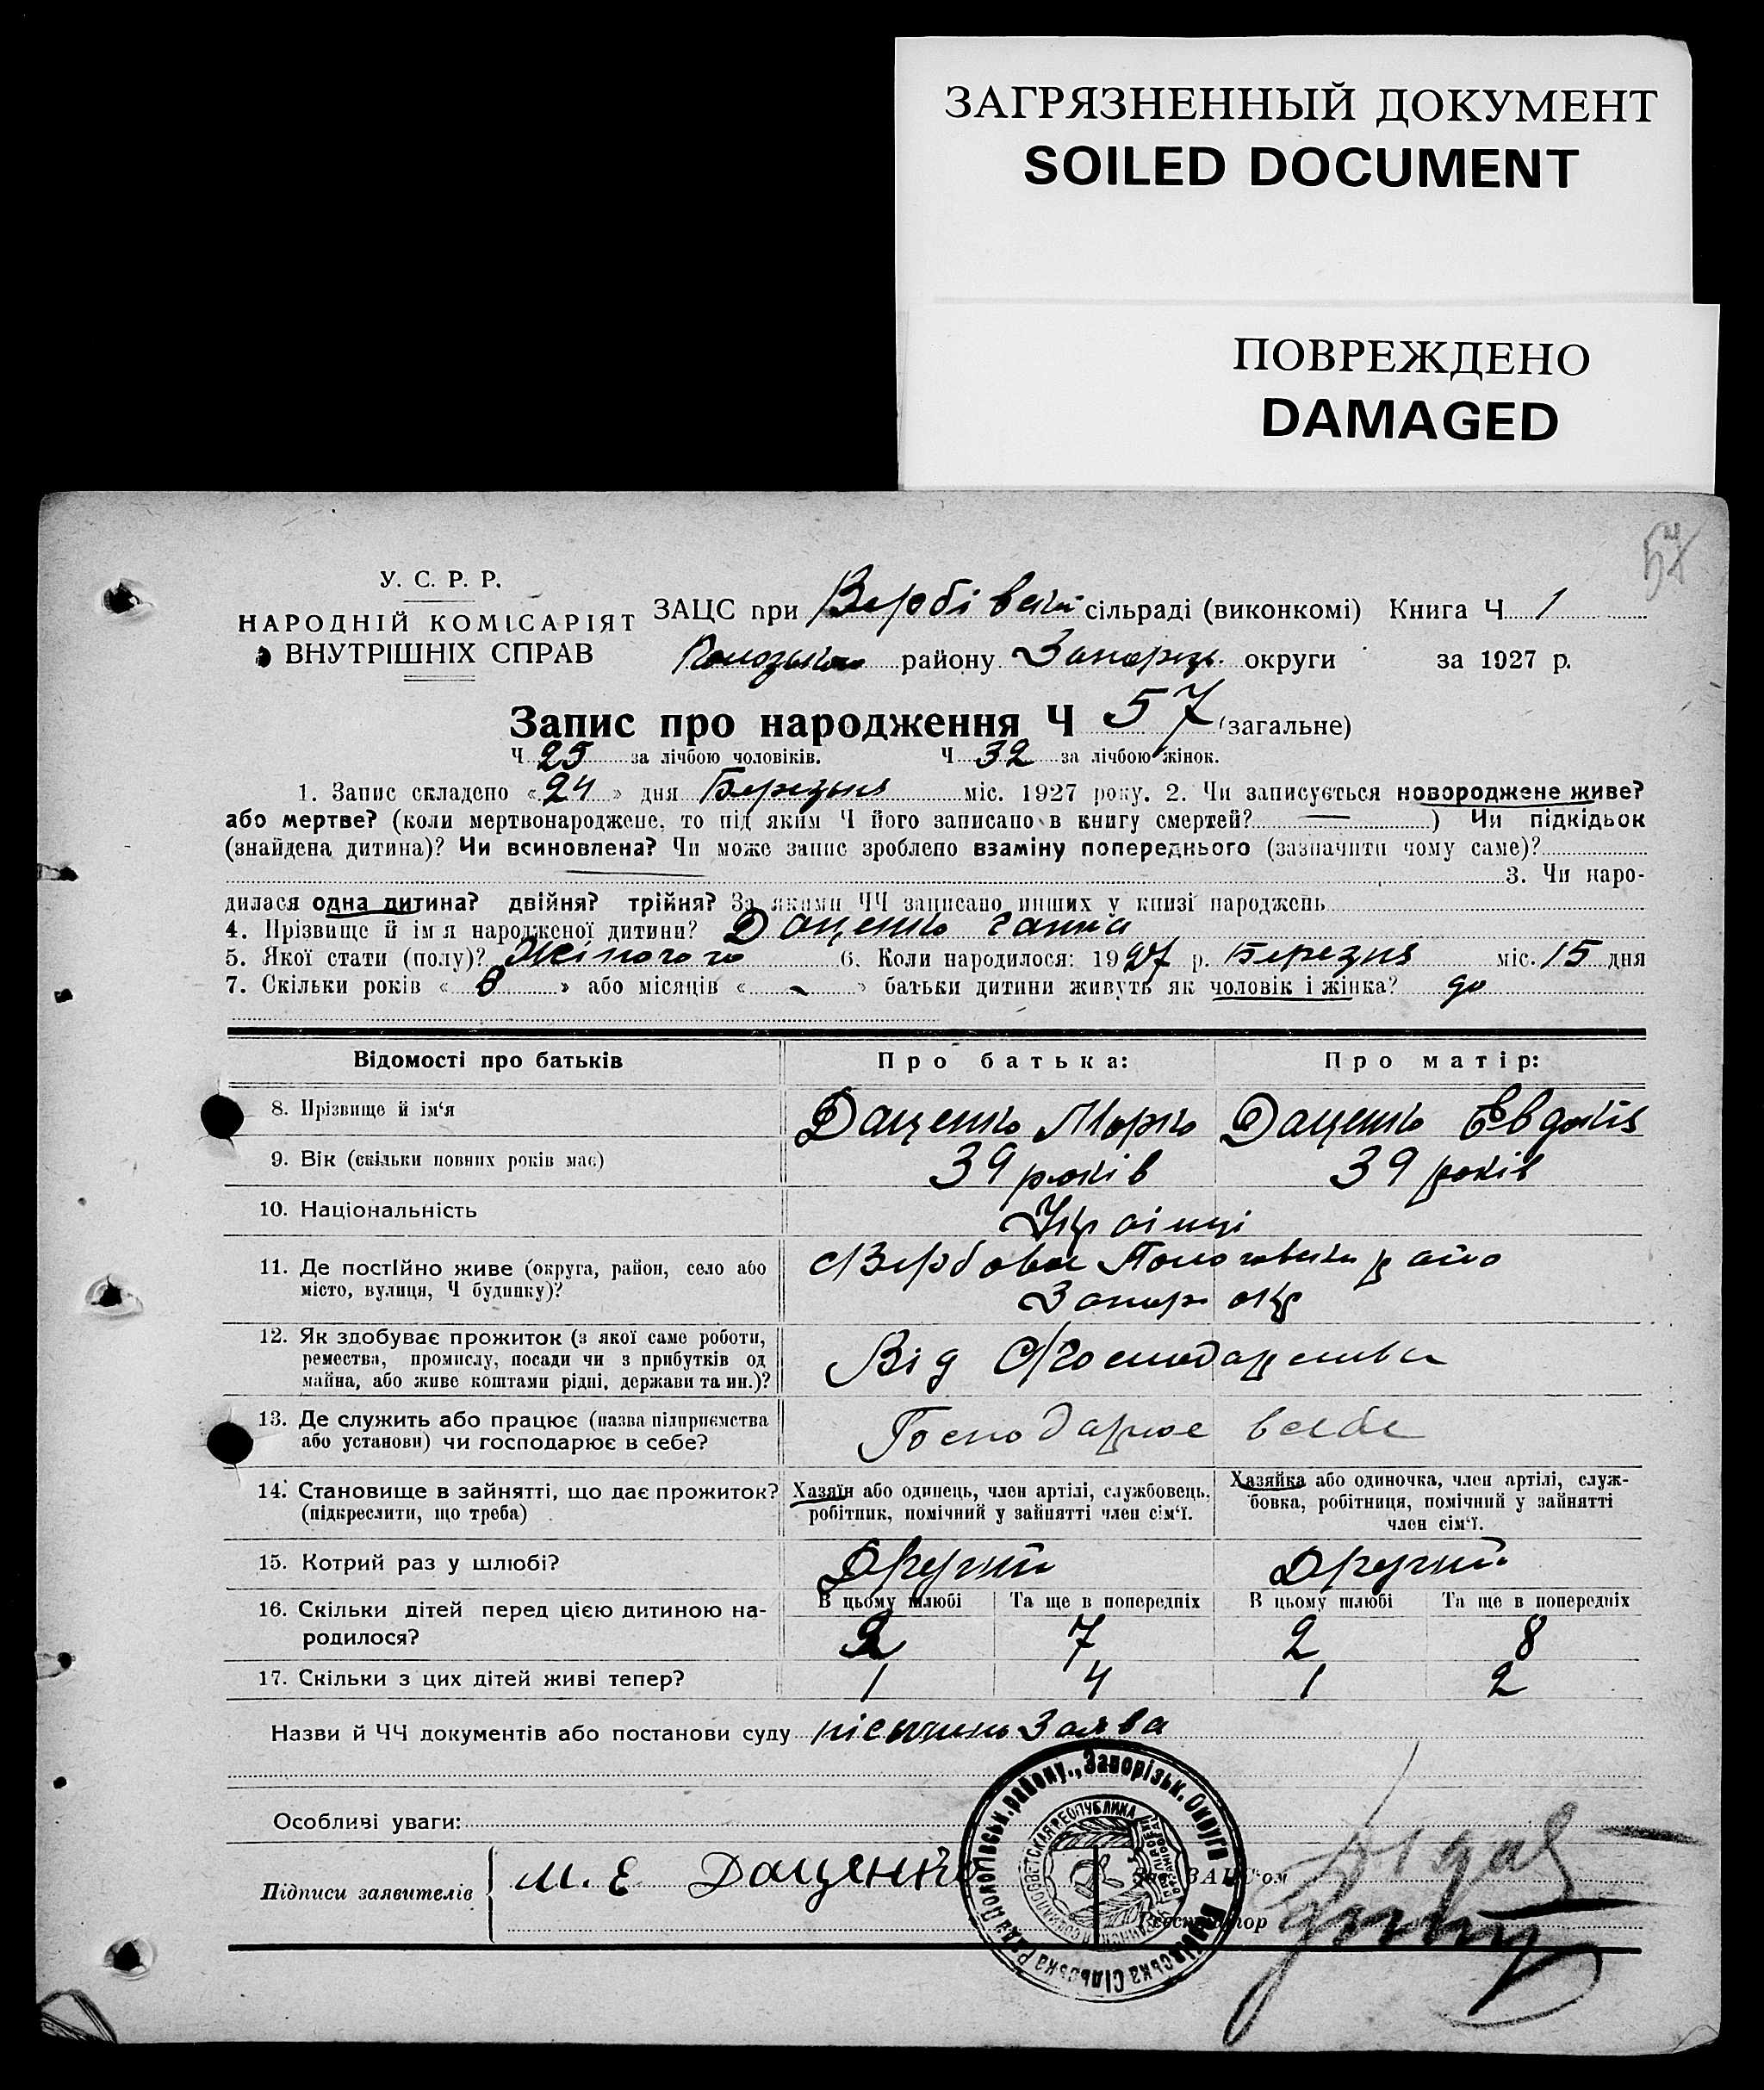 ЗАГРЯЗНЕННЫЙ ДОКУМЕНТ
SOILED DOCUMENT
ПОВРЕЖДЕНО
DAMAGED
У. С. Р. Р.
НАРОДНІЙ КОМІСАРІЯТ
ВНУТРІШНІХ СПРАВ
ЗАЦС при Вербівській сільраді (виконкомі) Книга Ч 1
району Запоріз. округи за 1927 р.
Запис про народження Ч 57 (загальне)
Ч 25 за лічбою чоловіків. Ч 32 за лічбою жінок.
1. Запис складено «24» дня Березня міс. 1927 року. 2. Чи записується новороджене живе?
або мертве? (коли мертвонароджене, то під яким Ч його записано в книгу смертей? —) Чи підкідьок
(знайдена дитина)? Чи всиновлена? Чи може запис зроблено взаміну попереднього (зазначити чому саме)?
3. Чи наро-
дилася одна дитина? двійня? трійня? За якими ЧЧ записано инших у книзі народжень
4. Прізвище й ім'я народженої дитини? Даценко Ганна
5. Якої стати (полу)? Жіночого 6. Коли народилося: 1927 р. Березня міс. 15 дня
7. Скільки років «8» або місяців «-» батьки дитини живуть як чоловік і жінка? до
Відомості про батьків Про батька: Про матір:
8. Прізвище й ім'я Даценко Марко Даценко Евдокія
9. Вік (скільки повних років має) 39 років 39 років
10. Національність Українці
11. Де постійно живе (округа, район, село або
місто, вулиця, Ч будинку)?
с Вербове Пологівськ райо
Запор окр
12. Як здобуває прожиток (з якої саме роботи,
ремества, промислу, посади чи з прибутків од
майна, або живе коштами рідні, держави та ин.)?
Від Господарства
13. Де служить або працює (назва підприємства
або установи) чи господарює в себе?
Господарює в себе
14. Становище в зайнятті, що дає прожиток?
(підкреслити, що треба)
Хазяїн або одинець, член артілі, службовець,
робітник, помічний у зайнятті член сім'ї.
Хазяйка або одиночка, член артілі, служ-
бовка, робітниця, помічний у зайнятті
член сім'ї.
15. Котрий раз у шлюбі? Другий Другий
16. Скільки дітей перед цією дитиною на-
родилося?
В цьому шлюбі Та ще в попередніх В цьому шлюбі Та ще в попередніх
2 7 2 8
17. Скільки з цих дітей живі тепер? 1 4 1 2
Назви й ЧЧ документів або постанови суду Заява
Особливі уваги:
Підписи заявителів М. Е Даценко
ЗАЦС'ом
Реєстратор
Сільська Рада Пологівськ. району., Запорізьк. Округи